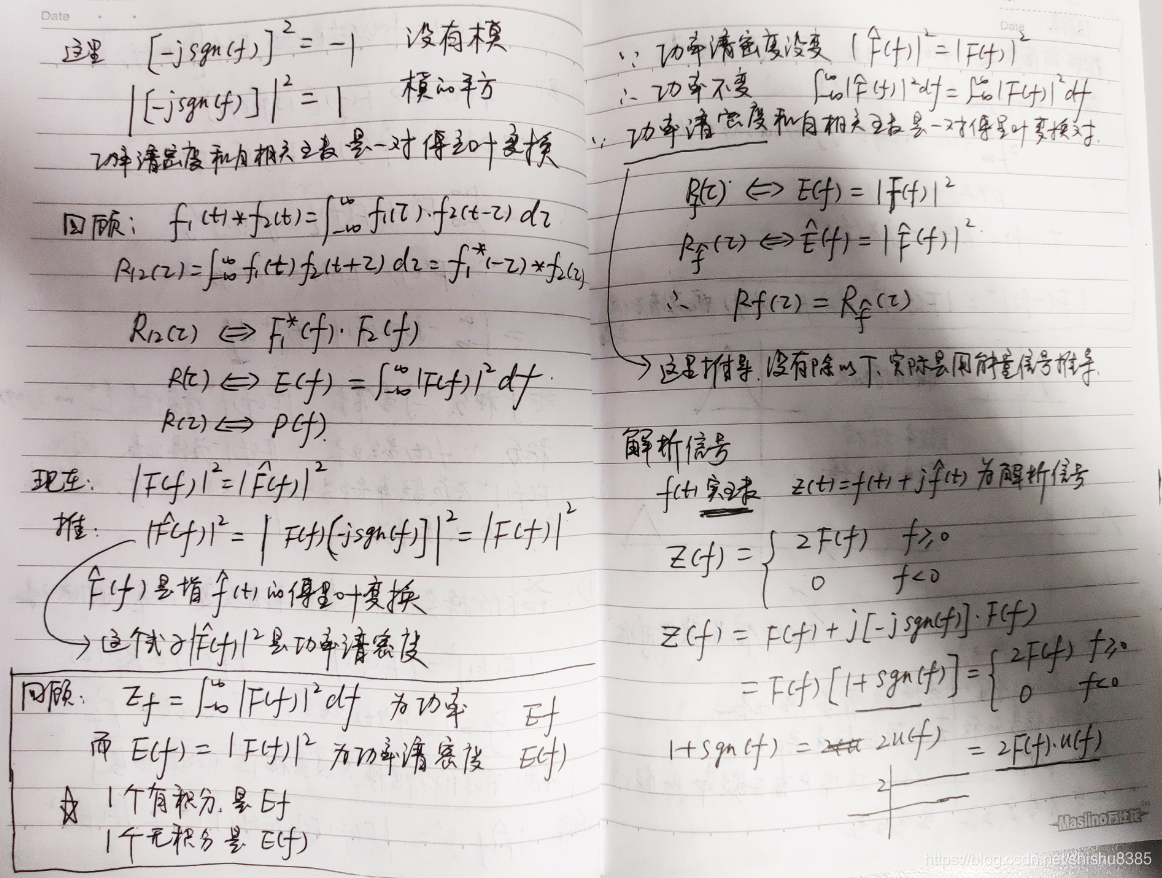 Date
这里 [-jsgn(f)]² = -1 没有模
|[-jsgn(f)]|² = 1 模的平方
功率谱密度和自相关函数是一对傅里叶变换
回顾: f₁(t)*f₂(t)=∫_{-∞}^{∞} f₁(τ)·f₂(t-τ) dτ
R₁₂(τ)=∫_{-∞}^{∞} f₁(t) f₂(t+τ) dτ = f₁*(-τ)*f₂(τ)
R₁₂(τ) ⇔ F₁*(f)·F₂(f)
R(τ) ⇔ E(f) = ∫_{-∞}^{∞} |F(f)|² df
R(τ) ⇔ P(f)
现在: |F(f)|²=|F̂(f)|²
推: |F̂(f)|² = |F(f)[-jsgn(f)]|² = |F(f)|²
F̂(f)是指 f̂(t)的傅里叶变换
→这个式子|F̂(f)|²是功率谱密度
回顾: Ef = ∫_{-∞}^{∞} |F(f)|² df 为功率 Ef
而 E(f) = |F(f)|² 为功率谱密度 E(f)
☆ 1个有积分.是 Ef
1个无积分是 E(f)
Date
∵ 功率谱密度没变 |F̂(f)|²=|F(f)|²
∴ 功率不变 ∫_{-∞}^{∞}|F̂(f)|²df=∫_{-∞}^{∞}|F(f)|²df
∵ 功率谱密度和自相关函数是一对傅里叶变换对.
Rf(τ) ⇔ E(f) = |F(f)|²
R_f̂(τ) ⇔ Ê(f) = |F̂(f)|²
∴ Rf(τ) = R_f̂(τ)
→这里推导.没有除以T.实际是用能量信号推导.
解析信号
f(t)实函数 z(t)=f(t)+jf̂(t) 为解析信号
Z(f) = { 2F(f) f≥0
0 f<0
Z(f) = F(f) + j[-jsgn(f)]·F(f)
= F(f) [1+sgn(f)] = { 2F(f) f≥0
0 f<0
1+sgn(f) = 2u(f) = 2F(f)·u(f)
2
https://blog.csdn.net/shishu8385